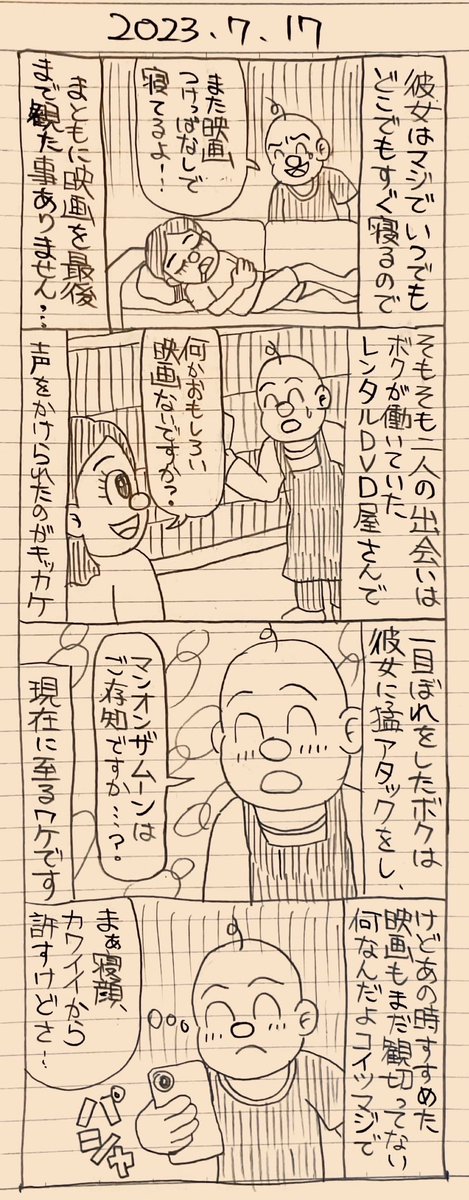 2023.7.17
彼女はマジでいつでも
どこでもすぐ寝るので
また映画
つけっぱなしで
寝てるよ…
まともに映画を最後
まで観た事ありません…
そもそも二人の出会いは
ボクが働いていた
レンタルDVD屋さんで
何かおもしろい
映画ないですか?
声をかけられたのがキッカケ
一目ぼれをしたボクは
彼女に猛アタックをし、
マンオンザムーンは
ご存知ですか…?
現在に至るワケです
けどあの時すすめた
映画もまだ観切ってない
何なんだよコイツマジで
まぁ寝顔、
カワイイから
許すけどさ…
パシャ